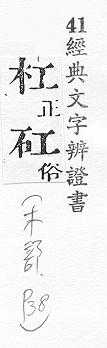 41經典文字辨證書
杠正
矼俗
(木部
P38)